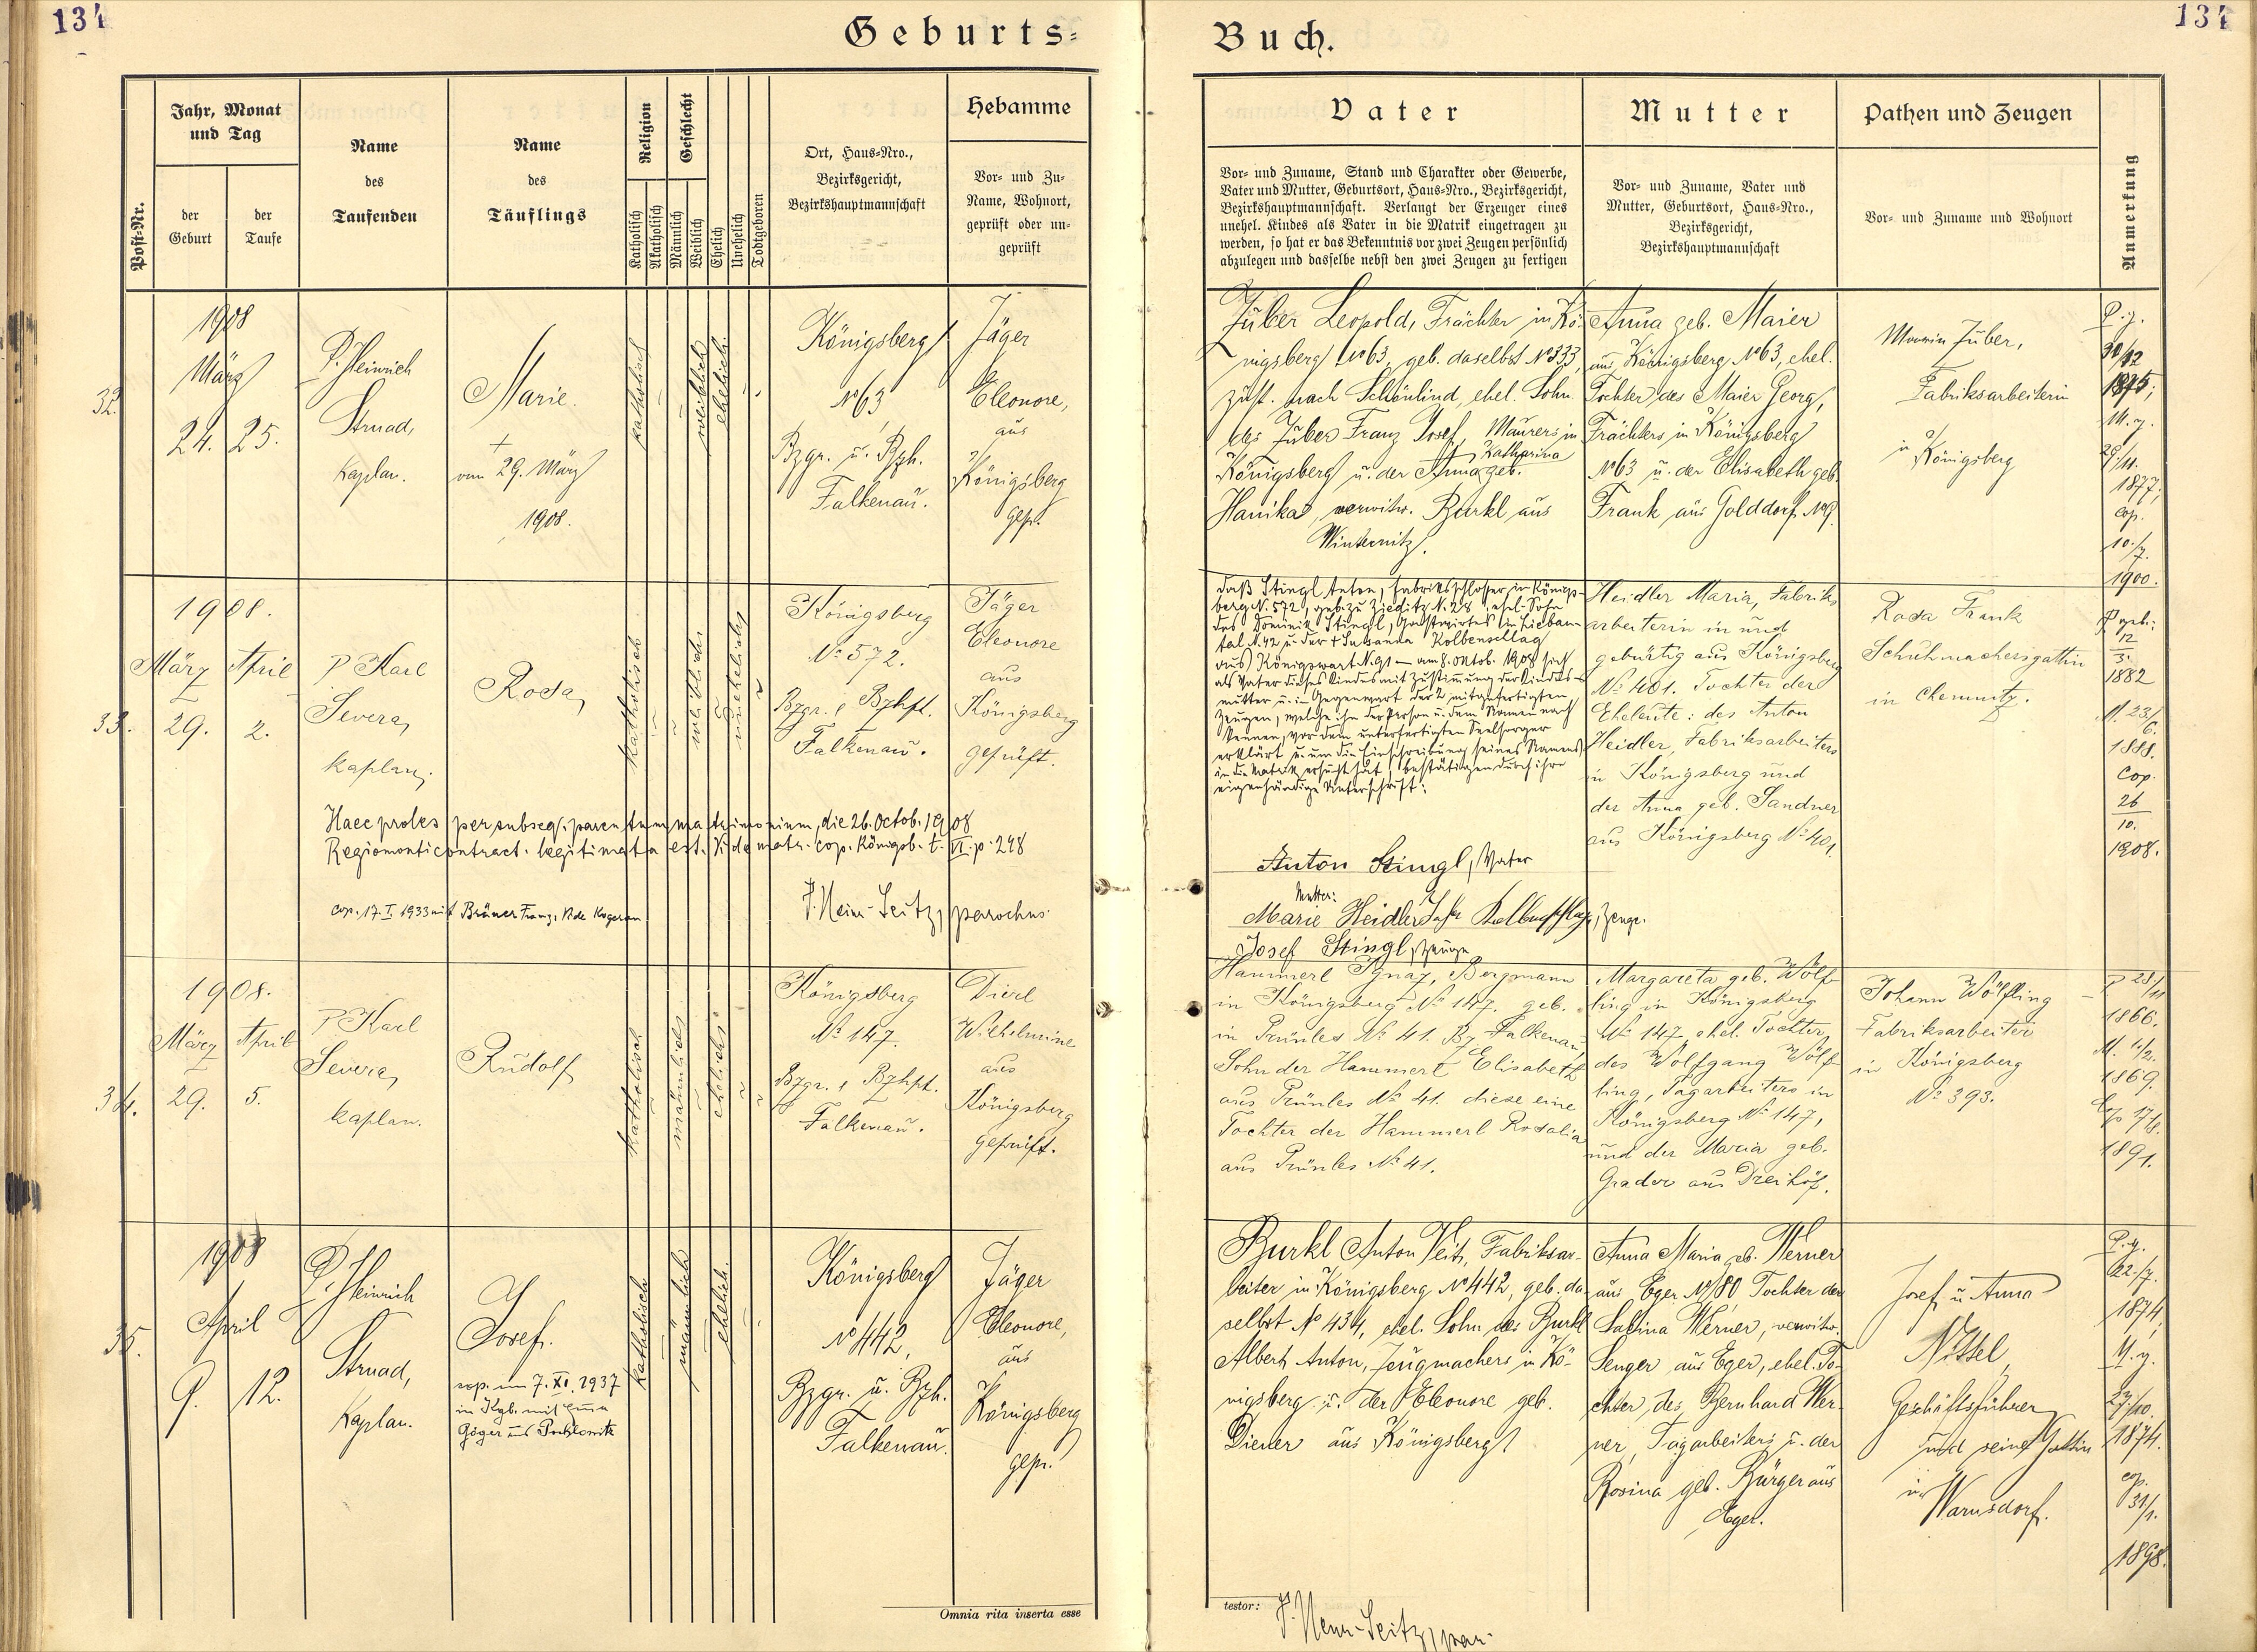 134
Geburts-
Buch.
134
Post-Nr.
Jahr, Monat
und Tag
der
Geburt
der
Taufe
Name
des
Taufenden
Name
des
Täuflings
Religion
Katholisch
Akatholisch
Geschlecht
Männlich
Weiblich
Ehelich
Unehelich
Todtgeboren
Ort, Haus-Nro.,
Bezirksgericht,
Bezirkshauptmannschaft
Hebamme
Vor- und Zu-
Name, Wohnort,
geprüft oder un-
geprüft
Vater
Vor- und Zuname, Stand und Charakter oder Gewerbe,
Vater und Mutter, Geburtsort, Haus-Nro., Bezirksgericht,
Bezirkshauptmannschaft. Verlangt der Erzeuger eines
unehel. Kindes als Vater in die Matrik eingetragen zu
werden, so hat er das Bekenntnis vor zwei Zeugen persönlich
abzulegen und dasselbe nebst den zwei Zeugen zu fertigen
Mutter
Vor- und Zuname, Vater und
Mutter, Geburtsort, Haus-Nro.,
Bezirksgericht,
Bezirkshauptmannschaft
Pathen und Zeugen
Vor- und Zuname und Wohnort
Anmerkung
32.
1908
März
24. 25.
P. Heinrich
Strnad,
Kaplan.
Marie.
+
vom 29. März
1908.
katholisch
weiblich
ehelich.
Königsberg
No 63
Bzgr. u. Bzh.
Falkenau.
Jäger
Eleonore,
aus
Königsberg
gepr.
Züber Leopold, Frächter in Kö-
nigsberg No 63, geb. daselbst No 333,
zust. nach Schönlind, ehel. Sohn
des Züber Franz Josef, Maurers in
Katharina
Königsberg u. der Anna geb.
Hanika, verwitw. Burkl aus
Anna geb. Maier
aus Königsberg No 63, ehel.
Tochter des Maier Georg,
Frächters in Königsberg
No 63 u. der Elisabeth geb.
Frank aus Golddorf
Züber,
Fabriksarbeiterin
in
Königsberg
1877;
cop.
10./7.
1900.
33.
1908.
März April
29. 2.
P Karl
Severa,
kaplan.
Rosa,
katholisch
weiblich
unehelich
Königsberg
No 572.
Bzgr. & Bzhpt.
Falkenau.
Jäger
Eleonore
aus
Königsberg
geprüft.
Daß Stingl Anton, Fabriksschlosser in Königs-
berg N. 572, geb. zu Zieditz N. 28, ehel. Sohn
des Dominik Stingl, Gastwirtes in Liebau-
tal N. 42 u. der + Susanna Kolbenschlag
aus Königswart N. 91 — am 8. Oktob. 1908 sich
als Vater dieses Kindes mit Zustimmung der Kindes-
mutter u. in Gegenwart der 2 mitgefertigten
Zeugen, welche ihn der Person u. dem Namen nach
kennen, vor dem unterfertigten Seelsorger
erklärt u. um die Einschreibung seines Namens
in die Matrik ersucht hat, bestätigen durch ihre
eigenhändige Unterschrift:
Anton Stingl, Vater
Mutter:
Marie Heidler Kolbenschlag, Zeuge.
Josef Stingl, Zeuge
Heidler Maria, Fabriks
arbeiterin in und
gebürtig aus Königsberg
No 401. Tochter der
Eheleute: des Anton
Heidler, Fabriksarbeiters
in Königsberg und
der Anna geb. Sandner
aus Königsberg No 401.
Rosa Frank
Schuhmachersgattin
in Chemnitz.
12
3.
1882
M. 23/
6.
1888.
Cop.
26
10.
1908.
Haec proles per subseq. parentum matrimonium, die 26. Octob. 1908
Regiomonti contract. legitimata est. Vide matr. cop. Königsb. t. VI. p. 248
cop. 17. I. 1933 mit Franz,
P. Heinr. Seitz, parochus.
34.
1908.
März April
29. 5.
P Karl
Severa,
kaplan.
Rudolf
katholisch
männlich
ehelich
Königsberg
No 147.
Bzgr. & Bzhpt.
Falkenau.
Dierl
Wilhelmine
aus
Königsberg
geprüft.
Hammerl Ignaz, Bergmann
in Königsberg No 147. geb.
in Prünles No 41. Bz. Falkenau
Sohn der Hammerl Elisabeth
aus Prünles No 41. diese eine
Tochter der Hammerl Rosalia
aus Prünles No 41.
Margareta geb. Wölf-
ling in Königsberg
No 147, ehel. Tochter
des Wolfgang Wölf-
ling, Tagarbeiters in
Königsberg No 147,
und der Maria geb.
Grader aus Dreihöf.
Johann Wölfling
Fabriksarbeiter
in Königsberg
No 393.
1866.
1869.
Cop 17/8.
1891.
35.
1908
April
9. 12.
P. Heinrich
Strnad,
Kaplan.
Josef.
cop. am 7. XI. 1937
in Kgb. mit
Göger aus
katholisch
männlich
ehelich.
Königsberg
No 442,
Bzgr. u. Bzh.
Falkenau.
Jäger
Eleonore,
aus
Königsberg
gepr.
Burkl Anton Veit, Fabriksar-
beiter in Königsberg No 442, geb. da-
selbst No 434, ehel. Sohn des Burkl
Albert Anton, Zeugmachers in Kö-
nigsberg u. der Eleonore geb.
Diener aus Königsberg
Anna Maria geb. Werner
aus Eger Tochter der
Sabina Werner, verwitw.
Senger aus Eger, ehel. To-
chter des Bernhard Wer-
ner, Tagarbeiters u. der
Rosina geb. Bürger aus
Eger.
Josef u. Anna
Nittel
Geschäftsführer
und seine Gattin
in
Warnsdorf.
22./7.
1874,
27/10.
1874.
cop.
31/1.
1898.
Omnia rita inserta esse
testor:
P. Henr. Seitz, par.